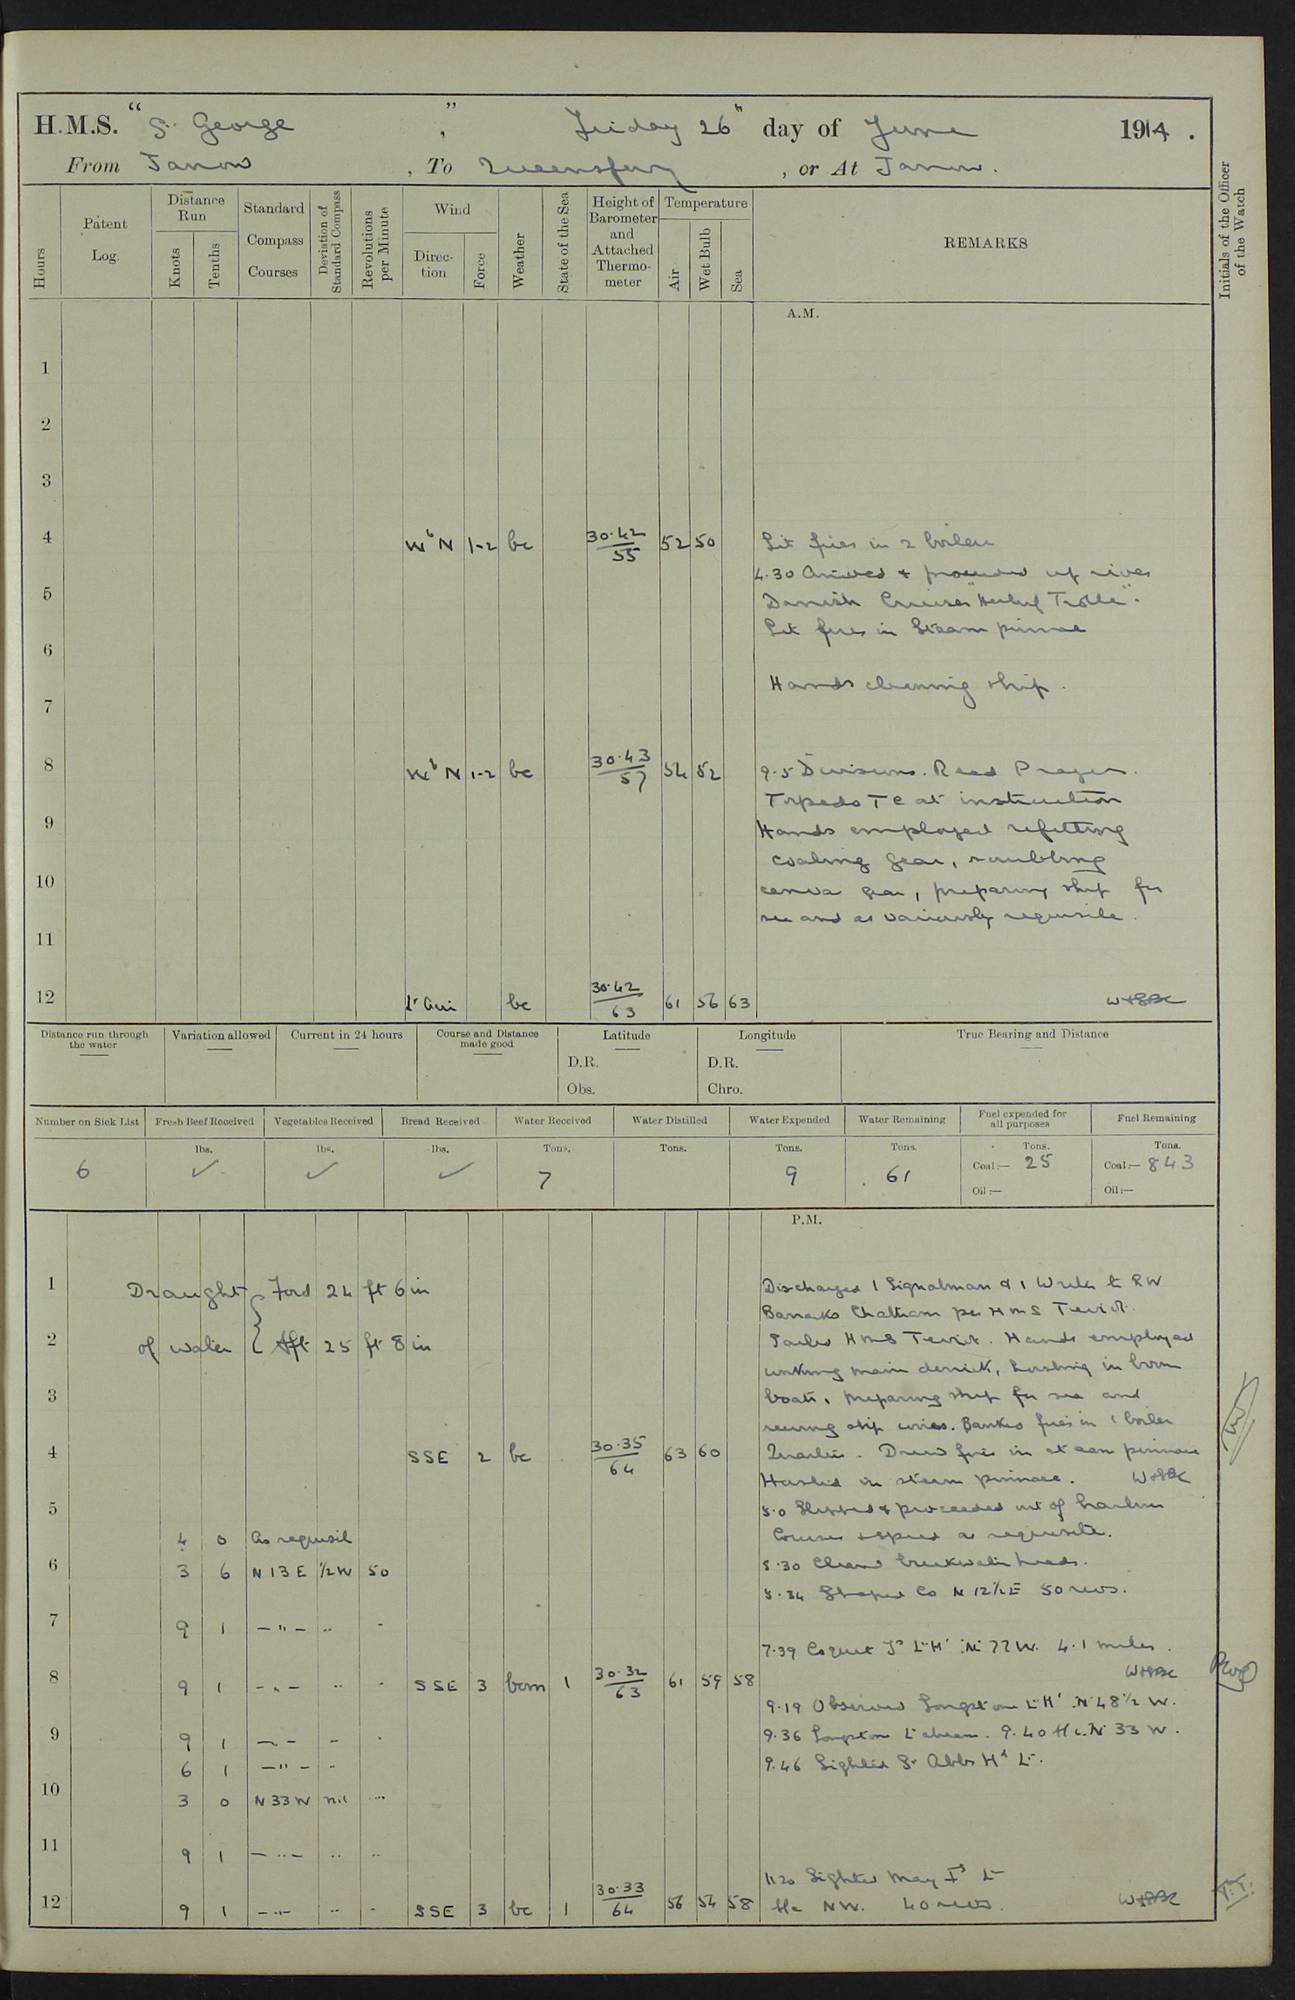 H.M.S. " St George " , Friday 26th day of June 1914.
From Jarrow , To Queensferry , or At Jarrow.
Hours
Patent Log.
Distance Run
Knots
Tenths
Standard Compass Courses
Deviation of Standard Compass
Revolutions per Minute
Wind
Direction
Force
Weather
State of the Sea
Height of Barometer and Attached Thermometer
Temperature
Air
Wet Bulb
Sea
REMARKS
Initials of the Officer of the Watch
A.M.
1
2
3
4 WbN 1-2 bc 30.42/55 52 50 Lit fires in 2 boilers
4.30 Arrived & proceeded up river
5 Danish Cruiser "Herluf Trolle".
Lit fires in Steam pinnace
6
Hands cleaning ship.
7
8 WbN 1-2 bc 30.43/57 54 52 9.5 Divisions. Read Prayers.
Torpedo TC at instruction
9 Hands employed refitting
coaling gear, scrubbing
10 canvas gear, preparing ship for
sea and as variously requisite.
11
12 Lt Airs bc 30.42/63 61 56 63
Distance run through the water
Variation allowed
Current in 24 hours
Course and Distance made good
Latitude
D.R.
Obs.
Longitude
D.R.
Chro.
True Bearing and Distance
Number on Sick List
Fresh Beef Received
Vegetables Received
Bread Received
Water Received
Water Distilled
Water Expended
Water Remaining
Fuel expended for all purposes
Fuel Remaining
lbs. lbs. lbs. Tons. Tons. Tons. Tons. Tons. Tons.
6 ✓ ✓ ✓ 7 9 61 Coal:— 25 Coal:— 843
Oil:— Oil:—
P.M.
1 Draught { Ford 24 ft 6 in Discharged 1 Signalman & 1 Writer to RN
Barracks Chatham per HMS Teviot.
2 of water { Aft 25 ft 8 in Sailed HMS Teviot. Hands employed
working main derrick, hoisting in boom
3 boats, preparing ship for sea and
reeving slip wires. Banked fires in 1 boiler
4 SSE 2 bc 30.35/64 63 60 Quarters. Drew fires in steam pinnace
Hoisted in steam pinnace.
5 5.0 Slipped & proceeded out of harbour
4 0 As requisite Courses & speed as requisite.
6 3 6 N 13 E 1/2 W 50 5.30 Cleared breakwater heads.
5.34 Shaped Co N 12 1/2 E 50 revs.
7 9 1 — " — " "
7.39 Coquet Id Lt Ho N 77 W. 4.1 miles.
8 9 1 — " — " " SSE 3 bcm 1 30.32/63 61 59 58
9.19 Observed Longstone Lt Ho N 48 1/2 W.
9 9 1 — " — " " 9.36 Longstone Lt abeam. 9.40 A/c N 33 W.
6 1 — " — " 9.46 Sighted St Abbs Hd Lt.
10 3 0 N 33 W nil "
11 9 1 — " — " "
11.20 Sighted May Id Lt
12 9 1 — " — " " SSE 3 bc 1 30.33/64 56 54 58 A/c NW. 40 revs.